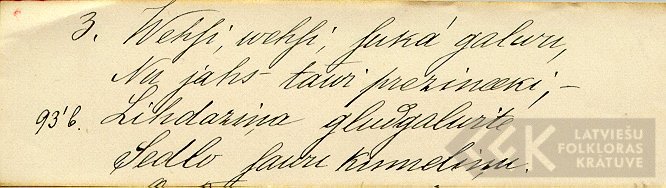 3. Wehsi, wehsi, sukā galwu,
Nu jahs tawi prezineeki, –
93'6. Lihdazina gludgalwite
Sedlo sawu kumeliņu.
LATVIEŠU
FOLKLORAS
KRĀTUVE